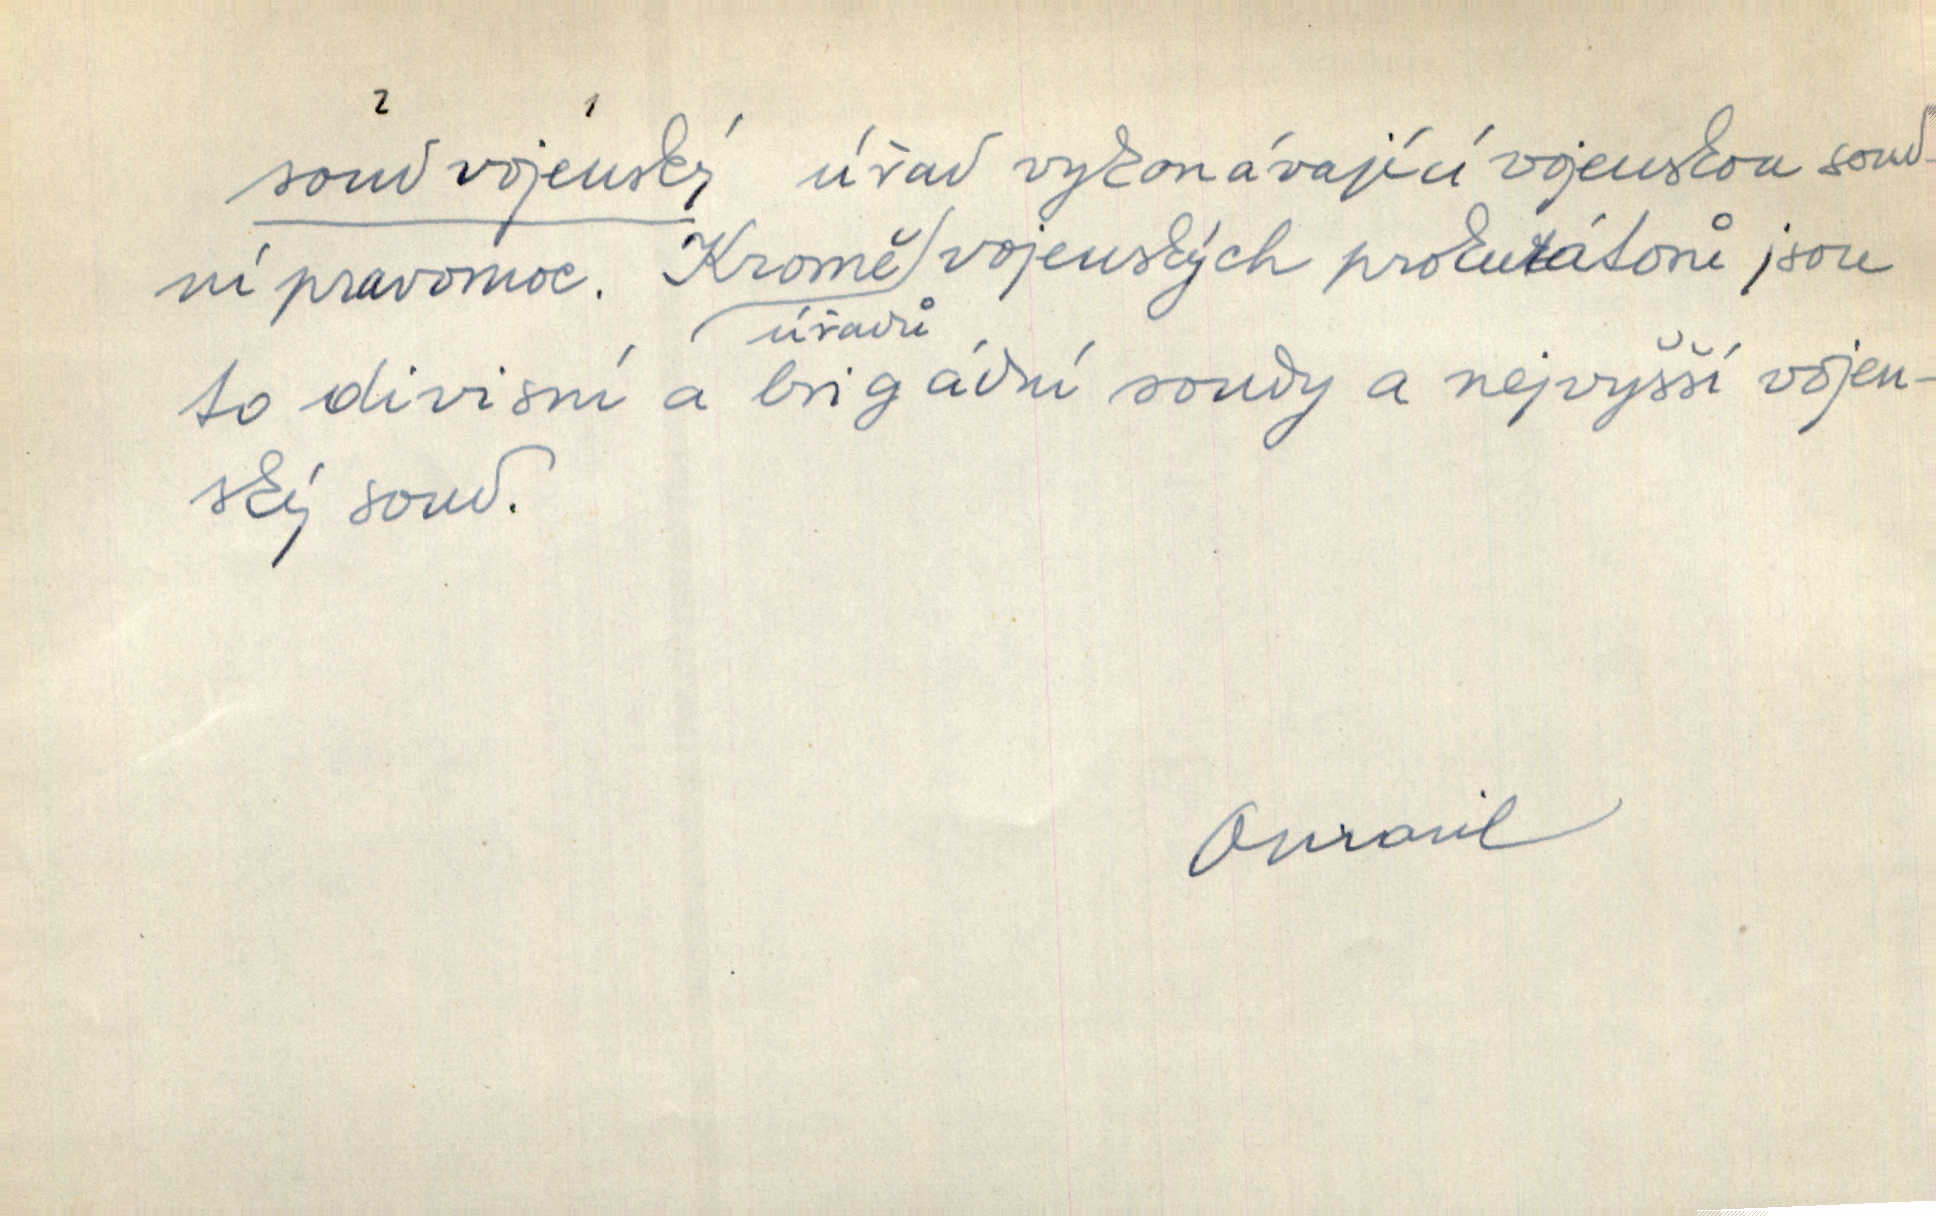 2 1
soud vojenský úřad vykonávající vojenskou soud-
ní pravomoc. Kromě vojenských prokurátorů jsou
úřadů
to divisní a brigádní soudy a nejvyšší vojen-
ský soud.